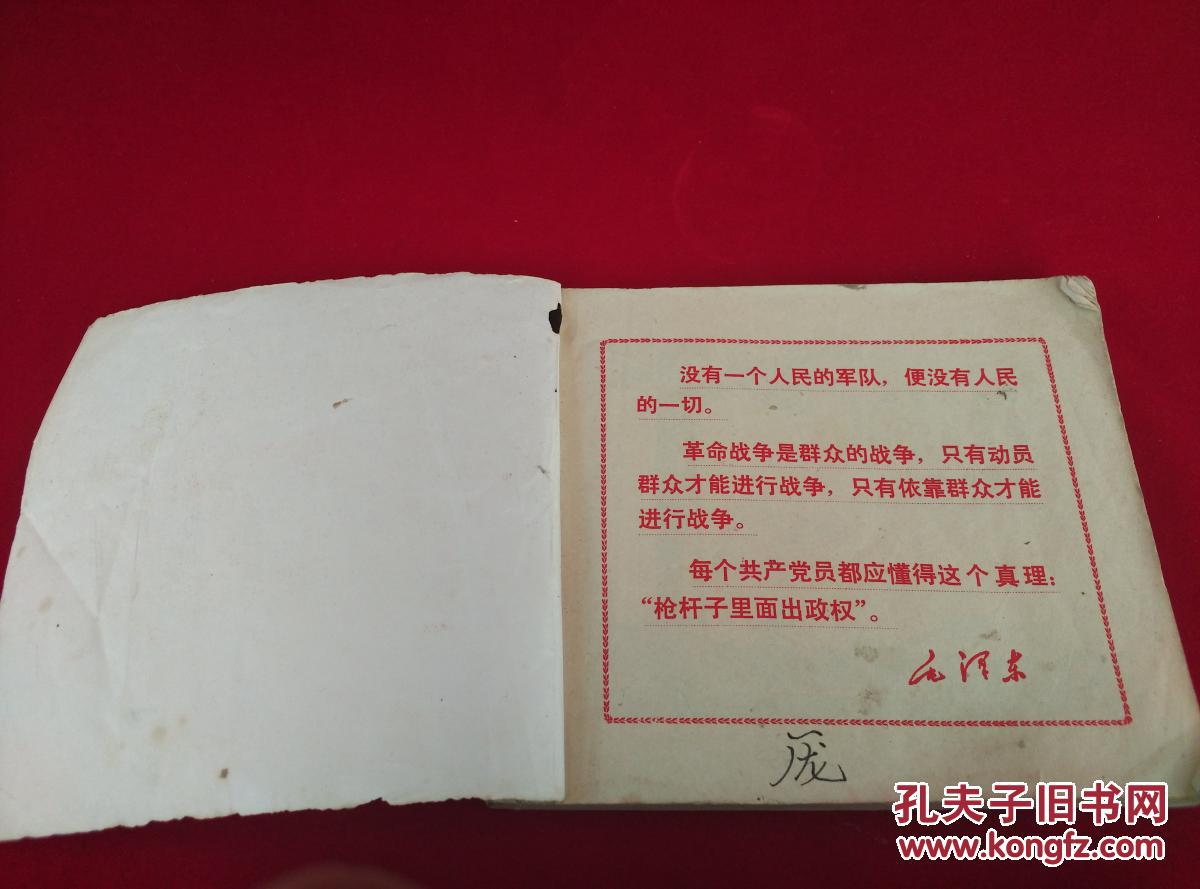 没有一个人民的军队，便没有人民
的一切。
革命战争是群众的战争，只有动员
群众才能进行战争，只有依靠群众才能
进行战争。
每个共产党员都应懂得这个真理：
“枪杆子里面出政权”。
毛泽东
孔夫子旧书网
www.kongfz.com